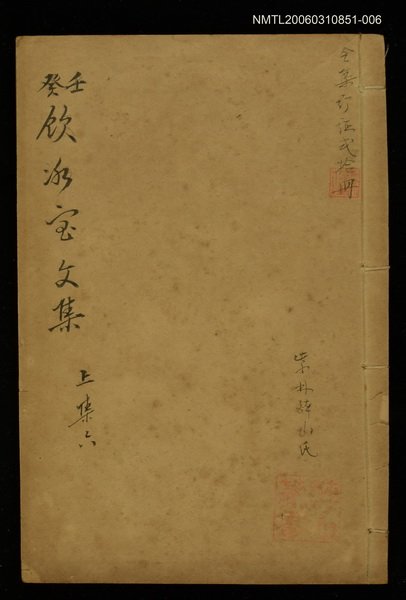 NMTL20060310851-006
全集訂伍弍拾冊
壬癸
飲冰室文集
上集六